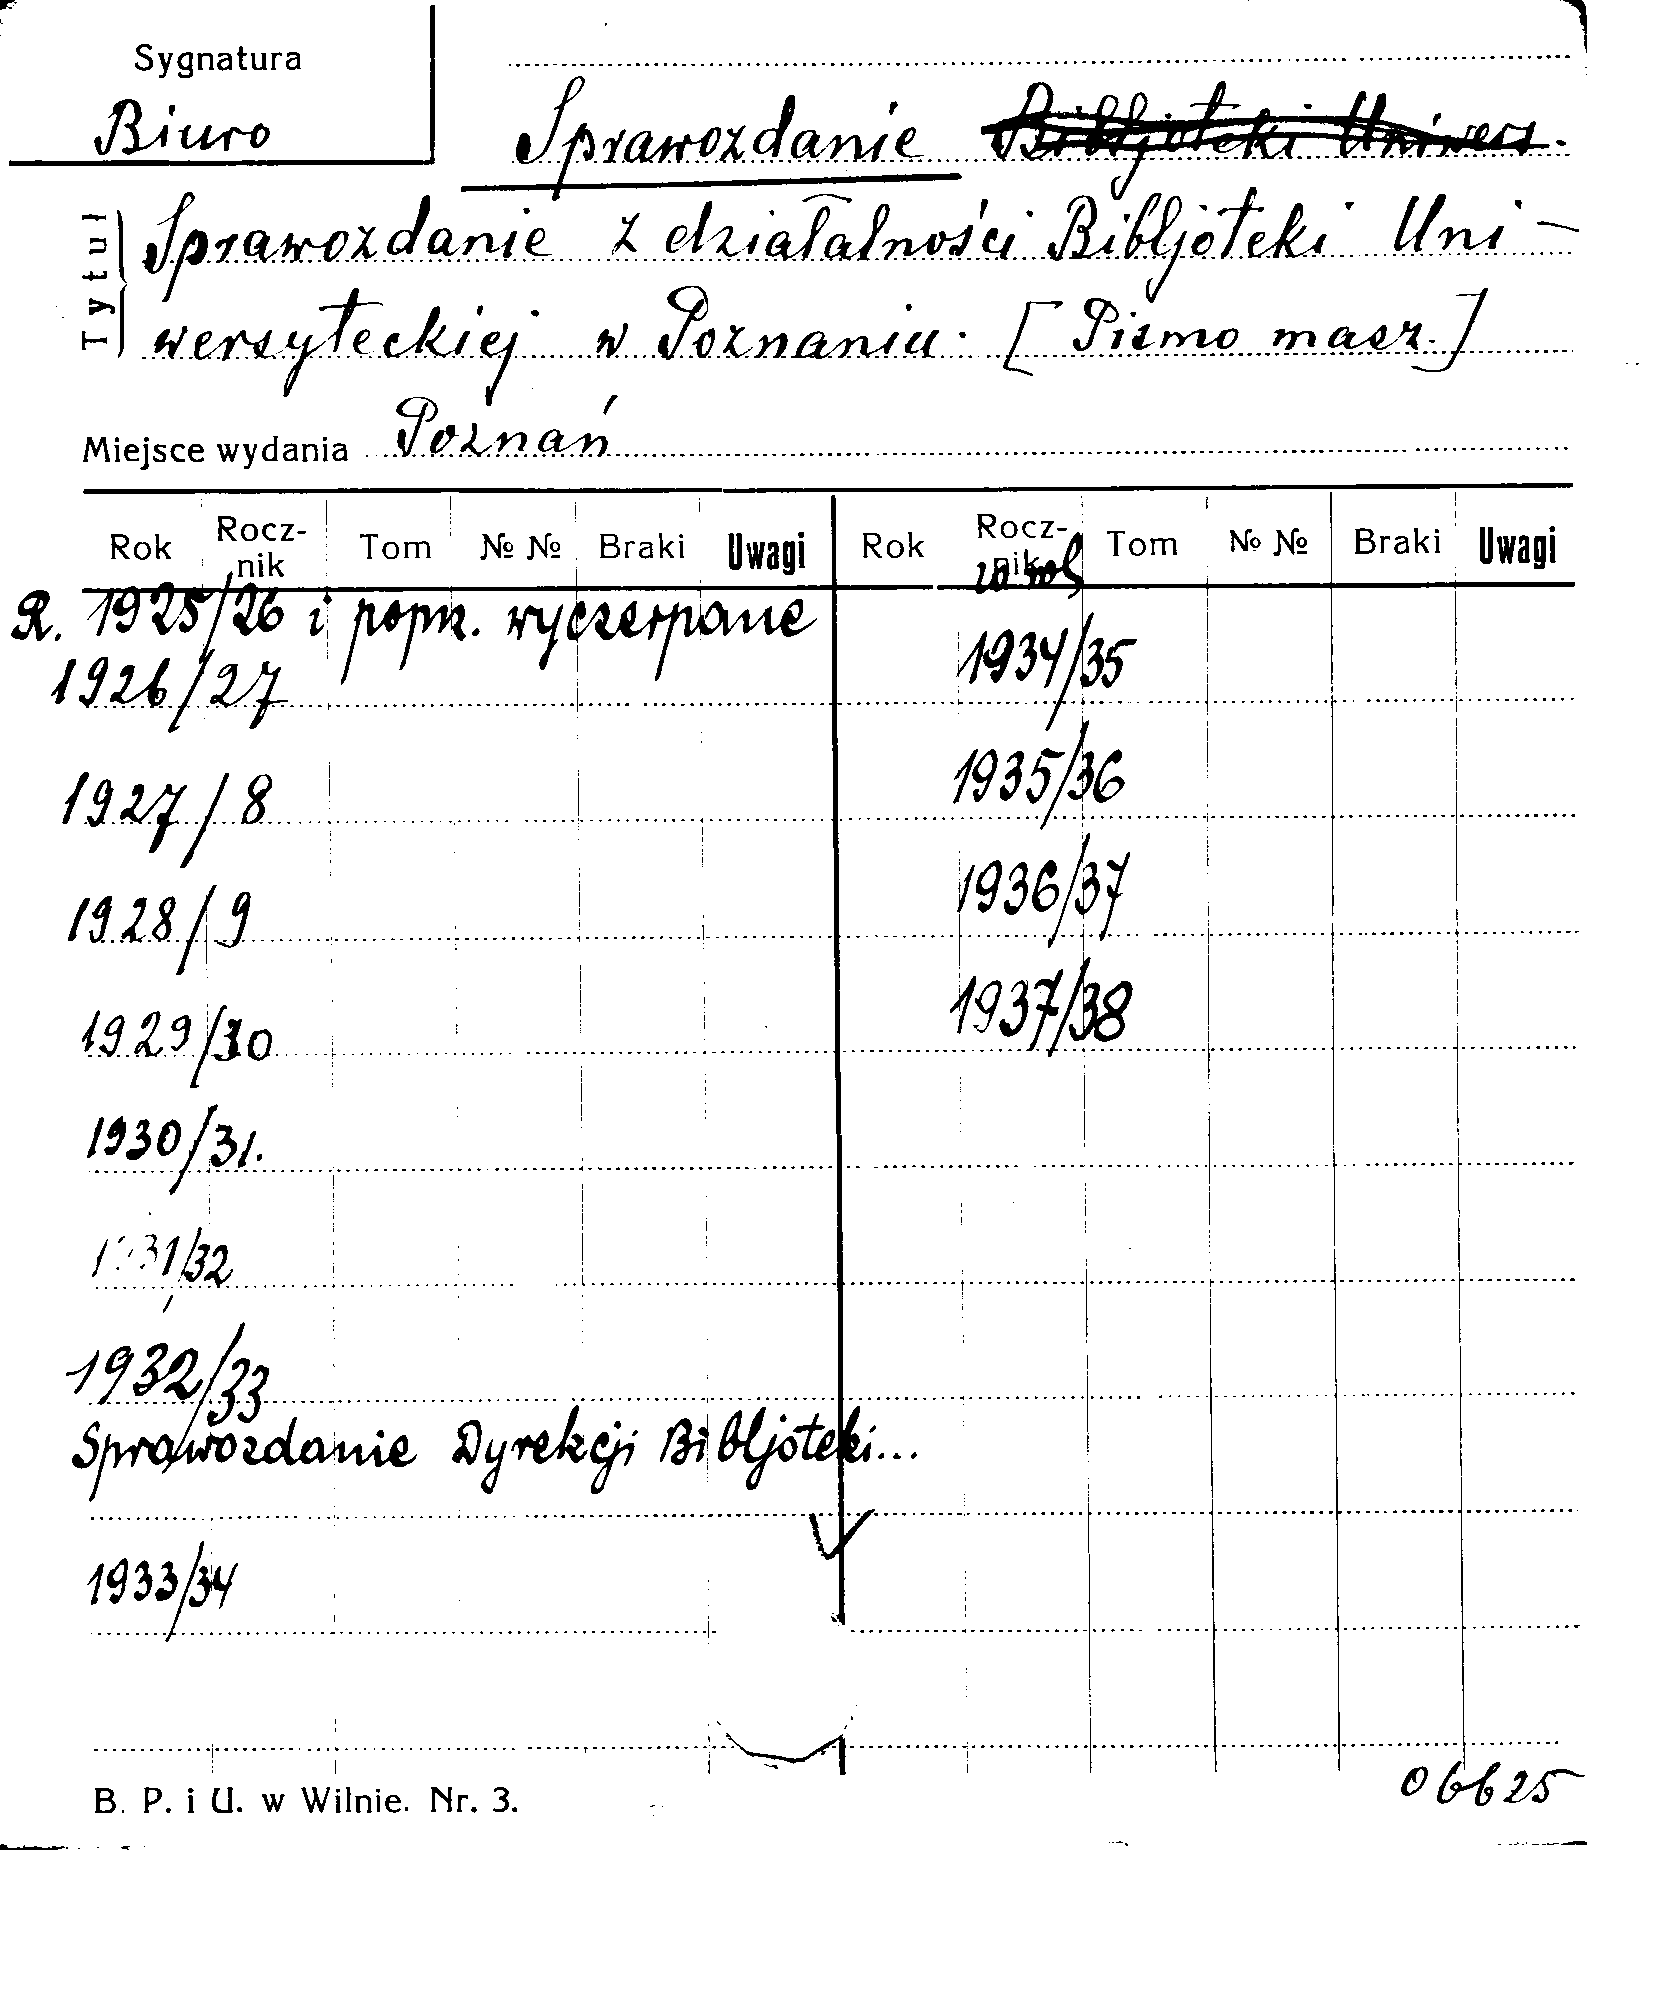 Sygnatura
Biuro
Sprawozdanie Bibljoteki Uniwers.
Tytuł
Sprawozdanie z działalności Bibljoteki Uni-
wersyteckiej w Poznaniu. [Pismo masz.]
Miejsce wydania Poznań
Rok Rocz-nik Tom № № Braki Uwagi Rok Rocz-nik Tom № № Braki Uwagi
R. 1925/26 i poprz. wyczerpane
1926/27
1934/35
1927/8
1935/36
1928/9
1936/37
1929/30
1937/38
1930/31.
1931/32
1932/33
Sprawozdanie Dyrekcji Bibljoteki...
1933/34
B. P. i U. w Wilnie. Nr. 3.
06625